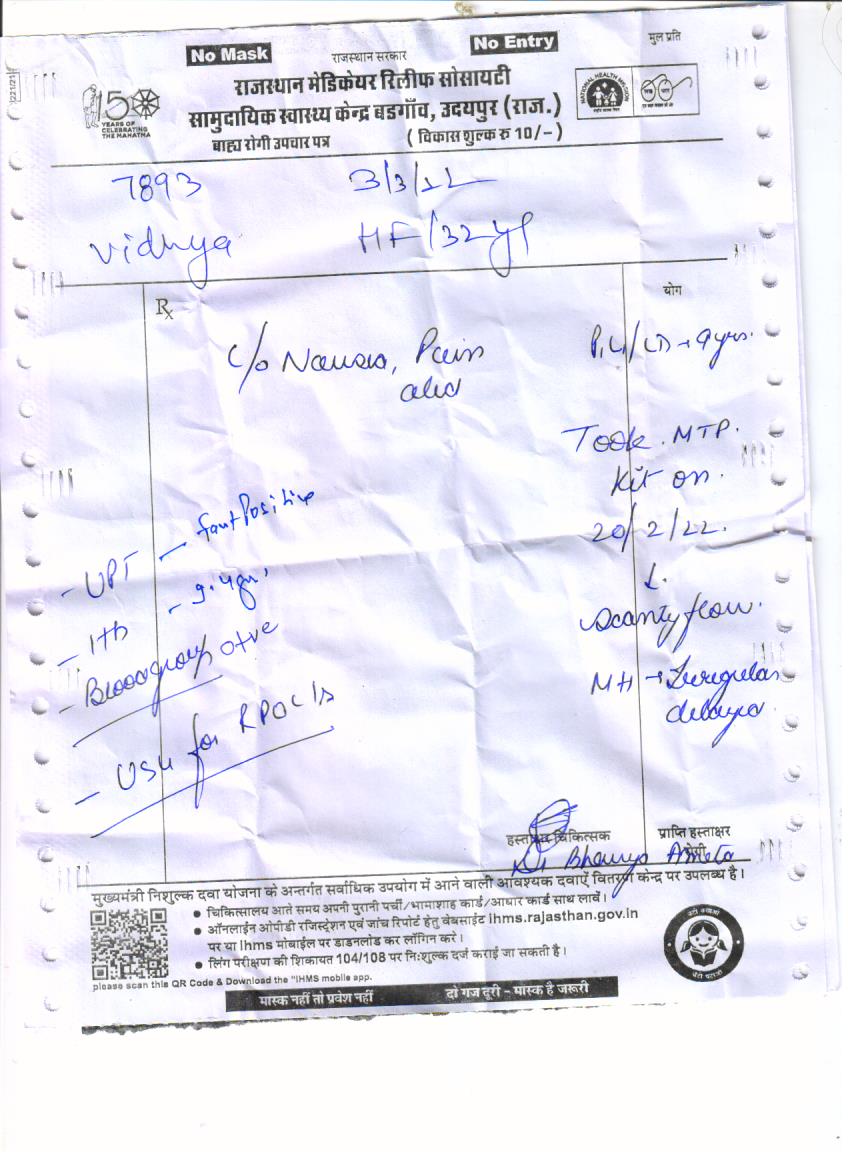 No Mask
राजस्थान सरकार
No Entry
मुल प्रति
राजस्थान मेडिकेयर रिलीफ सोसायटी
सामुदायिक स्वास्थ्य केन्द्र बडगाँव, उदयपुर (राज.)
बाह्य रोगी उपचार पत्र
( विकास शुल्क रु 10/-)
150
YEARS OF
CELEBRATING
THE MAHATMA
NATIONAL HEALTH MISSION
7893
3/3/22
Vidhya
HF/32yr
Rx
योग
c/o Nausea, Pain
abd
P1L1/LD → 9yrs.
Took MTP.
Kit on.
20/2/22.
↓
Scanty flow.
MH → Irregular
delayed
- UPT - faint Positive
- Hb - 9.4gm
- Blood group O+ve
- USG for RPOC's
हस्ताक्षर चिकित्सक
प्राप्ति हस्ताक्षर
रोगी
Dr Bhavya
मुख्यमंत्री निशुल्क दवा योजना के अन्तर्गत सर्वाधिक उपयोग में आने वाली आवश्यक दवाऐं वितरण केन्द्र पर उपलब्ध है।
• चिकित्सालय आते समय अपनी पुरानी पर्ची/भामाशाह कार्ड/आधार कार्ड साथ लावें।
• ऑनलाईन ओपीडी रजिस्ट्रेशन एवं जांच रिपोर्ट हेतु वेबसाईट ihms.rajasthan.gov.in
पर या Ihms मोबाईल पर डाउनलोड कर लॉगिन करे।
• लिंग परीक्षण की शिकायत 104/108 पर निःशुल्क दर्ज कराई जा सकती है।
please scan this QR Code & Download the "IHMS mobile app.
बेटी बचाओ
बेटी पढ़ाओ
मास्क नहीं तो प्रवेश नहीं
दो गज दूरी - मास्क है जरूरी